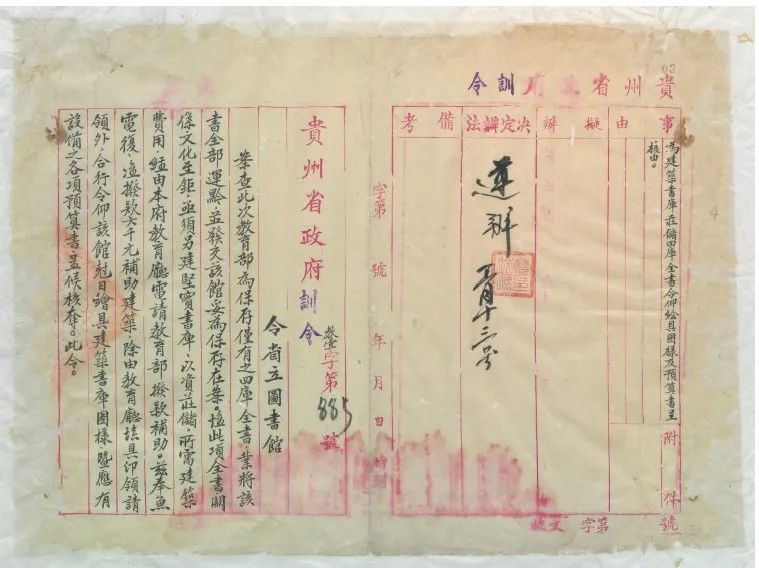 貴州省政府訓令
事由
擬辦
決定辦法
備考
為建築書庫莊儲四庫全書令仰繪具圖樣及預算書呈
核由。
附件
號
字第
收文
遵辦
月十三号
字第 號 年 月 日
貴州省政府訓令
字第885號
令省立圖書館
案查此次教育部為保存僅有之四庫全書,業將該
書全部運黔並發交該館妥為保存在案。惟此項全書關
係文化至鉅,亟須另建堅實書庫,以資莊儲,所需建築
費用,經由本府教育廳電請教育部撥款補助。茲奉魚
電復,准撥款六千元補助建築,除由教育廳填具印領請
領外,合行令仰該館尅日繪具建築書庫圖樣暨應有
設備之各項預算書,呈候核奪。此令。